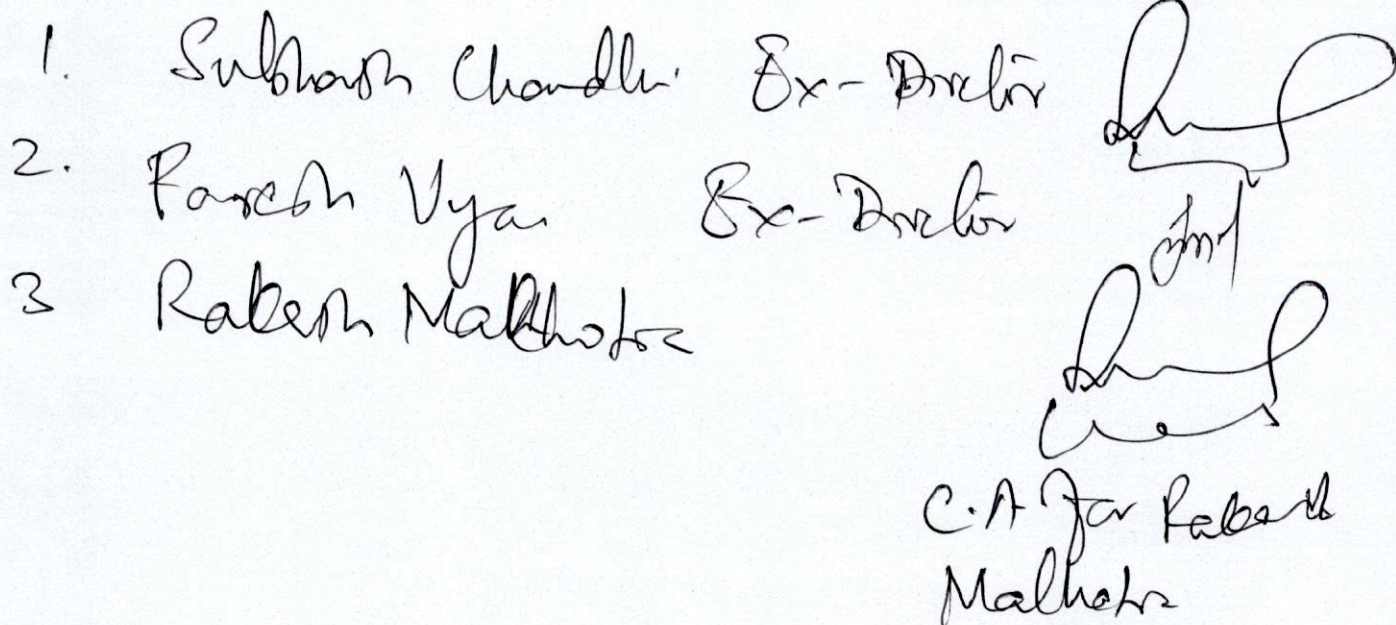 1. Subhash Chandhr. Ex-Director
2. Paresh Vyas Ex-Director
3 Rakesh Malhotra
C.A for Rakesh
Malhotra